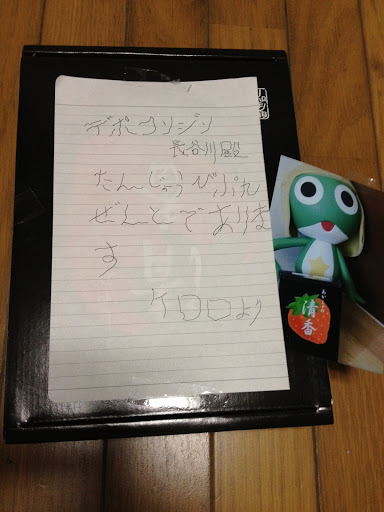 長谷川殿
たんじょうびぷれ
ぜんとでありま
す
ケロロより
清香